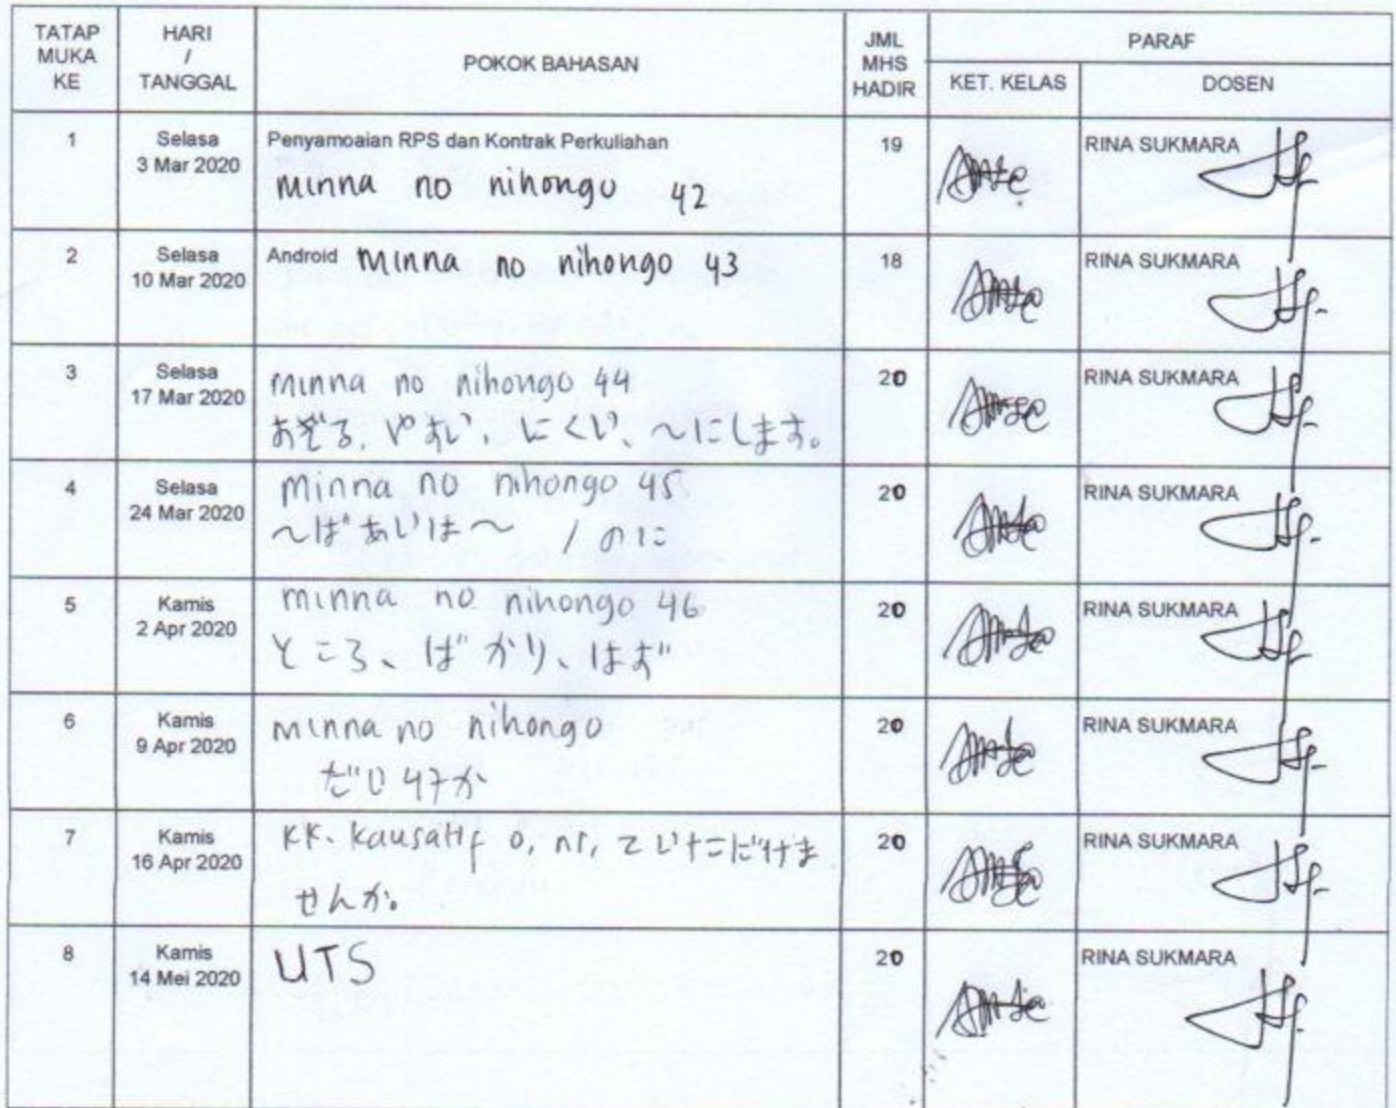 TATAP MUKA KE
HARI / TANGGAL
POKOK BAHASAN
JML MHS HADIR
PARAF
KET. KELAS
DOSEN
1
Selasa
3 Mar 2020
Penyamoaian RPS dan Kontrak Perkuliahan
minna no nihongo 42
19
RINA SUKMARA
2
Selasa
10 Mar 2020
Android minna no nihongo 43
18
RINA SUKMARA
3
Selasa
17 Mar 2020
minna no nihongo 44
やすい、にくい、～にします。
20
RINA SUKMARA
4
Selasa
24 Mar 2020
minna no nihongo 45
～ばあいは～ / のに
20
RINA SUKMARA
5
Kamis
2 Apr 2020
minna no nihongo 46
ところ、ばかり、はず
20
RINA SUKMARA
6
Kamis
9 Apr 2020
minna no nihongo
だい47か
20
RINA SUKMARA
7
Kamis
16 Apr 2020
KK. Kausatif o, ni, ていただけま
せんか。
20
RINA SUKMARA
8
Kamis
14 Mei 2020
UTS
20
RINA SUKMARA